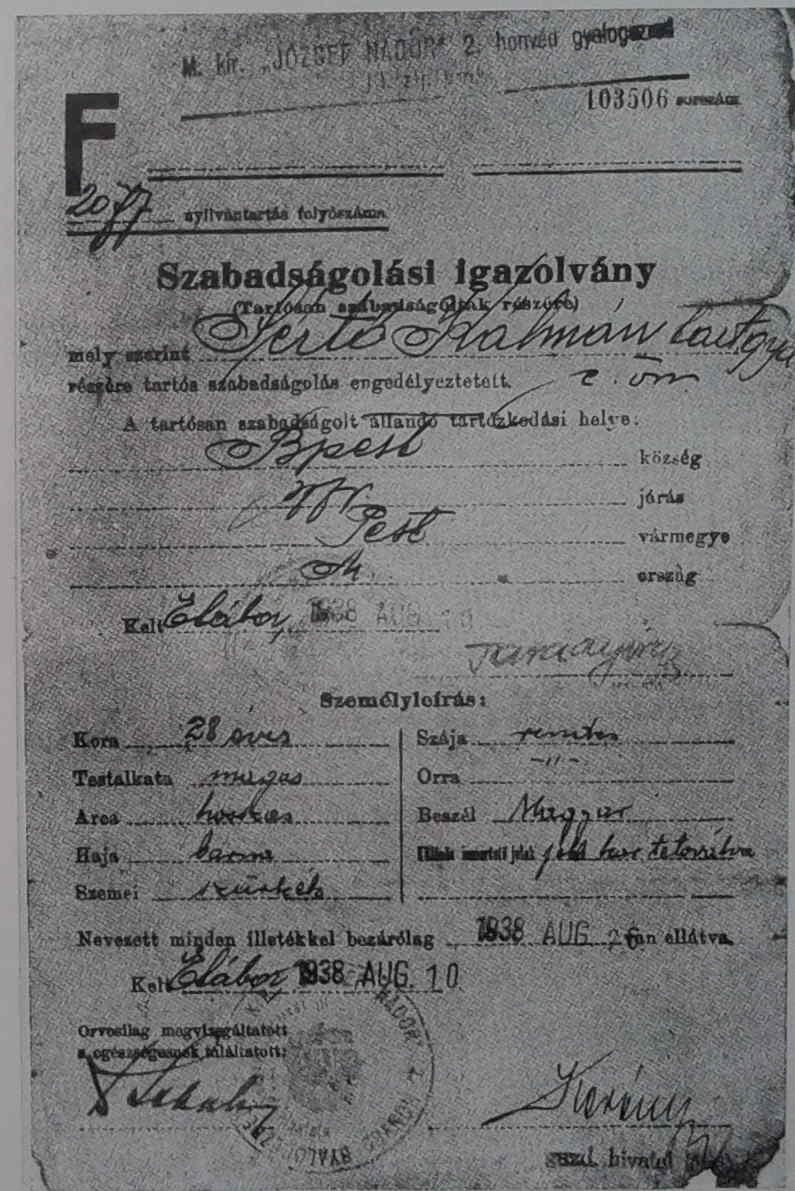 M. kir. „JÓZSEF NÁDOR" 2. honvéd gyalogezred
103506 sorszám
F
2077 nyilvántartás folyószáma
Szabadságolási igazolvány
(Tartósan szabadságoltak részére)
mely szerint Sértő Kálmán
részére tartós szabadságolás engedélyeztetett.
A tartósan szabadságolt állandó tartózkodási helye:
Bpest község
járás
Pest vármegye
M. ország
Kelt Elábor, 1938 AUG. 10
Személyleírás:
Kora 28 éves
Szája rendes
Testalkata magas
Orra -"-
Arca hosszas
Beszél Magyar
Haja barna
ismertető jelek tetovirálva
Szemei szürkék
Nevezett minden illetékkel bezárólag 1938 AUG. ellátva.
Kelt Elábor, 1938 AUG. 10
Orvosilag megvizsgáltatott
s egészségesnek találtatott:
NÁDOR 2. HONVÉD GYALOG
gazd. hivatal